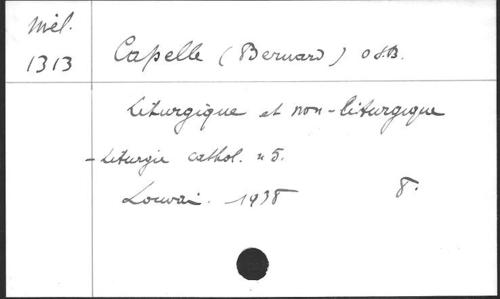 Mél.
1313
Capelle (Bernard) O.S.B.
Liturgique et non-liturgique
- Liturgie cathol. n 5.
Louvai. 1938 8.